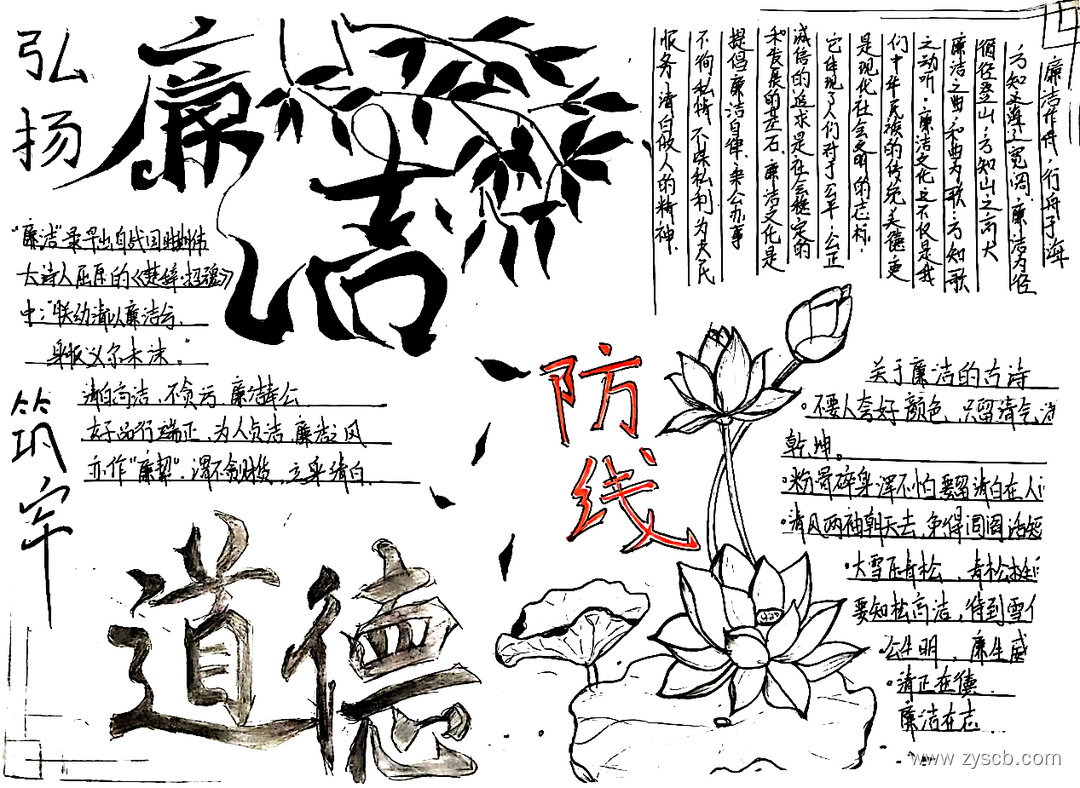 弘
扬
廉
洁
廉洁作舟,行舟于海
方知文海之宽阔,廉洁为径
循径登山,方知山之高大
廉洁之曲,和曲为歌,方知歌
之动听。廉洁文化它不仅是我
们中华民族的传统美德,更
是现代社会文明的志标,
它体现了人们对于公平、公正
诚信的追求是社会稳定的
和发展的基石,廉洁文化是
提倡廉洁自律,秉公办事
不徇私情,不谋私利为夫民
服务,清白做人的精神.
"廉洁"最早出自战国时期伟
大诗人屈原的《楚辞·招魂》
中:"朕幼清以廉洁兮,
身服义尔未沫。"
筑
牢
清白高洁,不贪污,廉洁奉公
好品行端正,为人贞洁,廉洁之风
亦作"廉絜".谓不贪财货,立身清白.
道德
防
线
关于廉洁的古诗
·不要人夸好颜色,只留清气满
乾坤。
·粉骨碎身浑不怕要留清白在人
·清风两袖朝天去,免得闾阎话短
·大雪压青松,青松挺
要知松高洁,待到雪
·公生明,廉生威
·清正在德
廉洁在志
www.zyscb.com